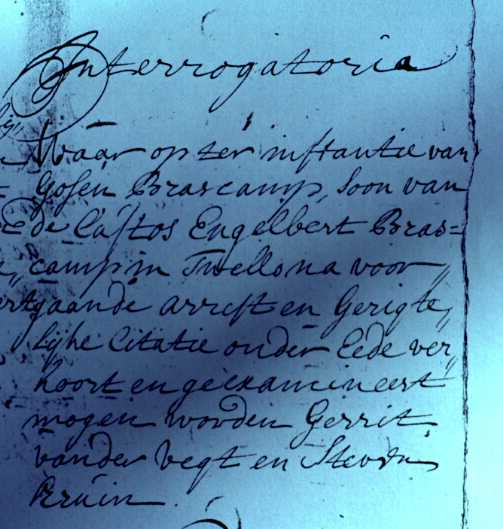 Interrogatoria
Waar op ter instantie van
Gosen Brascamp, Soon van
de Castos Engelbert Bras=
camp in Twello na voor„
gaande arrest en Gerigte„
lijke Citatie onder Eede ver„
hoort en geexamineert
mogen worden Gerrit
vander Vegt en Steven
Bruin